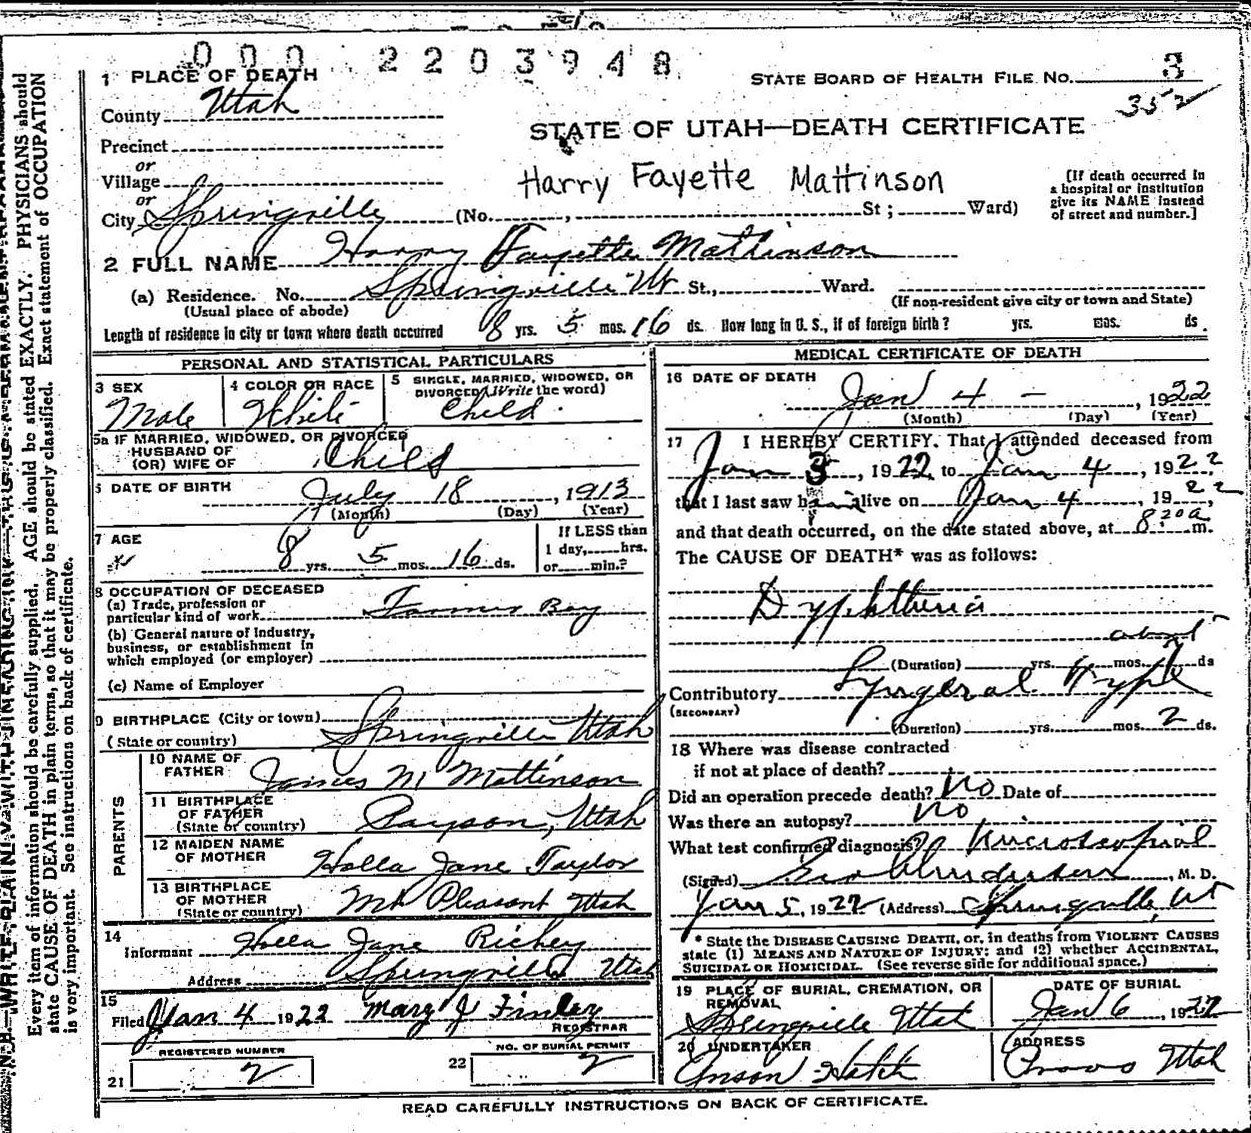 0 0 0 2 2 0 3 9 4 8
1 PLACE OF DEATH
STATE BOARD OF HEALTH FILE NO. 3
352
County Utah
STATE OF UTAH—DEATH CERTIFICATE
Precinct
or
Village
Harry Fayette Mattinson
[If death occurred in
a hospital or institution
give its NAME instead
of street and number.]
or
City Springville (No. , St ; Ward)
2 FULL NAME Harry Fayette Mattinson
(a) Residence. No. Springville Ut St., Ward.
(Usual place of abode)
(If non-resident give city or town and State)
Length of residence in city or town where death occurred 8 yrs. 5 mos. 16 ds. How long in U. S., if of foreign birth? yrs. mos. ds.
PERSONAL AND STATISTICAL PARTICULARS
3 SEX
Male
4 COLOR OR RACE
White
5 SINGLE, MARRIED, WIDOWED, OR
DIVORCED (Write the word)
Child
5a IF MARRIED, WIDOWED, OR DIVORCED
HUSBAND OF
(OR) WIFE OF Child
6 DATE OF BIRTH July 18, 1913
(Month) (Day) (Year)
7 AGE
8 yrs. 5 mos. 16 ds.
If LESS than
1 day, hrs.
or min.?
8 OCCUPATION OF DECEASED
(a) Trade, profession or
particular kind of work Farmer Boy
(b) General nature of Industry,
business, or establishment in
which employed (or employer)
(c) Name of Employer
9 BIRTHPLACE (City or town)
(State or country) Springville Utah
PARENTS
10 NAME OF
FATHER James M Mattinson
11 BIRTHPLACE
OF FATHER
(State or country) Payson, Utah
12 MAIDEN NAME
OF MOTHER Holla Jane Taylor
13 BIRTHPLACE
OF MOTHER
(State or country) Mt Pleasant Utah
14
Informant Holla Jane Richey
Address Springville Utah
15
Filed Jan 4 1922 Mary J Finley
REGISTRAR
REGISTERED NUMBER
21 2
NO. OF BURIAL PERMIT
22 2
MEDICAL CERTIFICATE OF DEATH
16 DATE OF DEATH
Jan 4 - , 1922
(Month) (Day) (Year)
17 I HEREBY CERTIFY. That I attended deceased from
Jan 3, 1922 to Jan 4, 1922,
that I last saw him alive on Jan 4, 1922,
and that death occurred, on the date stated above, at 8 20 a m.
The CAUSE OF DEATH* was as follows:
Dyphtheria
about
(Duration) yrs. mos. 7 ds
Contributory Lyngeral Type
(SECONDARY)
(Duration) yrs. mos. 2 ds.
18 Where was disease contracted
if not at place of death?
Did an operation precede death? No Date of
Was there an autopsy? no
What test confirmed diagnosis? Microscopial
(Signed) , M. D.
Jan 5, 1922 (Address) Springville, Ut
* State the DISEASE CAUSING DEATH, or, in deaths from VIOLENT CAUSES
state (1) MEANS AND NATURE OF INJURY; and (2) whether ACCIDENTAL,
SUICIDAL OR HOMICIDAL. (See reverse side for additional space.)
19 PLACE OF BURIAL, CREMATION, OR
REMOVAL
Springville Utah
DATE OF BURIAL
Jan 6, 1922
20 UNDERTAKER
Anson Hatch
ADDRESS
Provo Utah
READ CAREFULLY INSTRUCTIONS ON BACK OF CERTIFICATE.
Every item of information should be carefully supplied. AGE should be stated EXACTLY. PHYSICIANS should
state CAUSE OF DEATH in plain terms, so that it may be properly classified. Exact statement of OCCUPATION
is very important. See instructions on back of certificate.